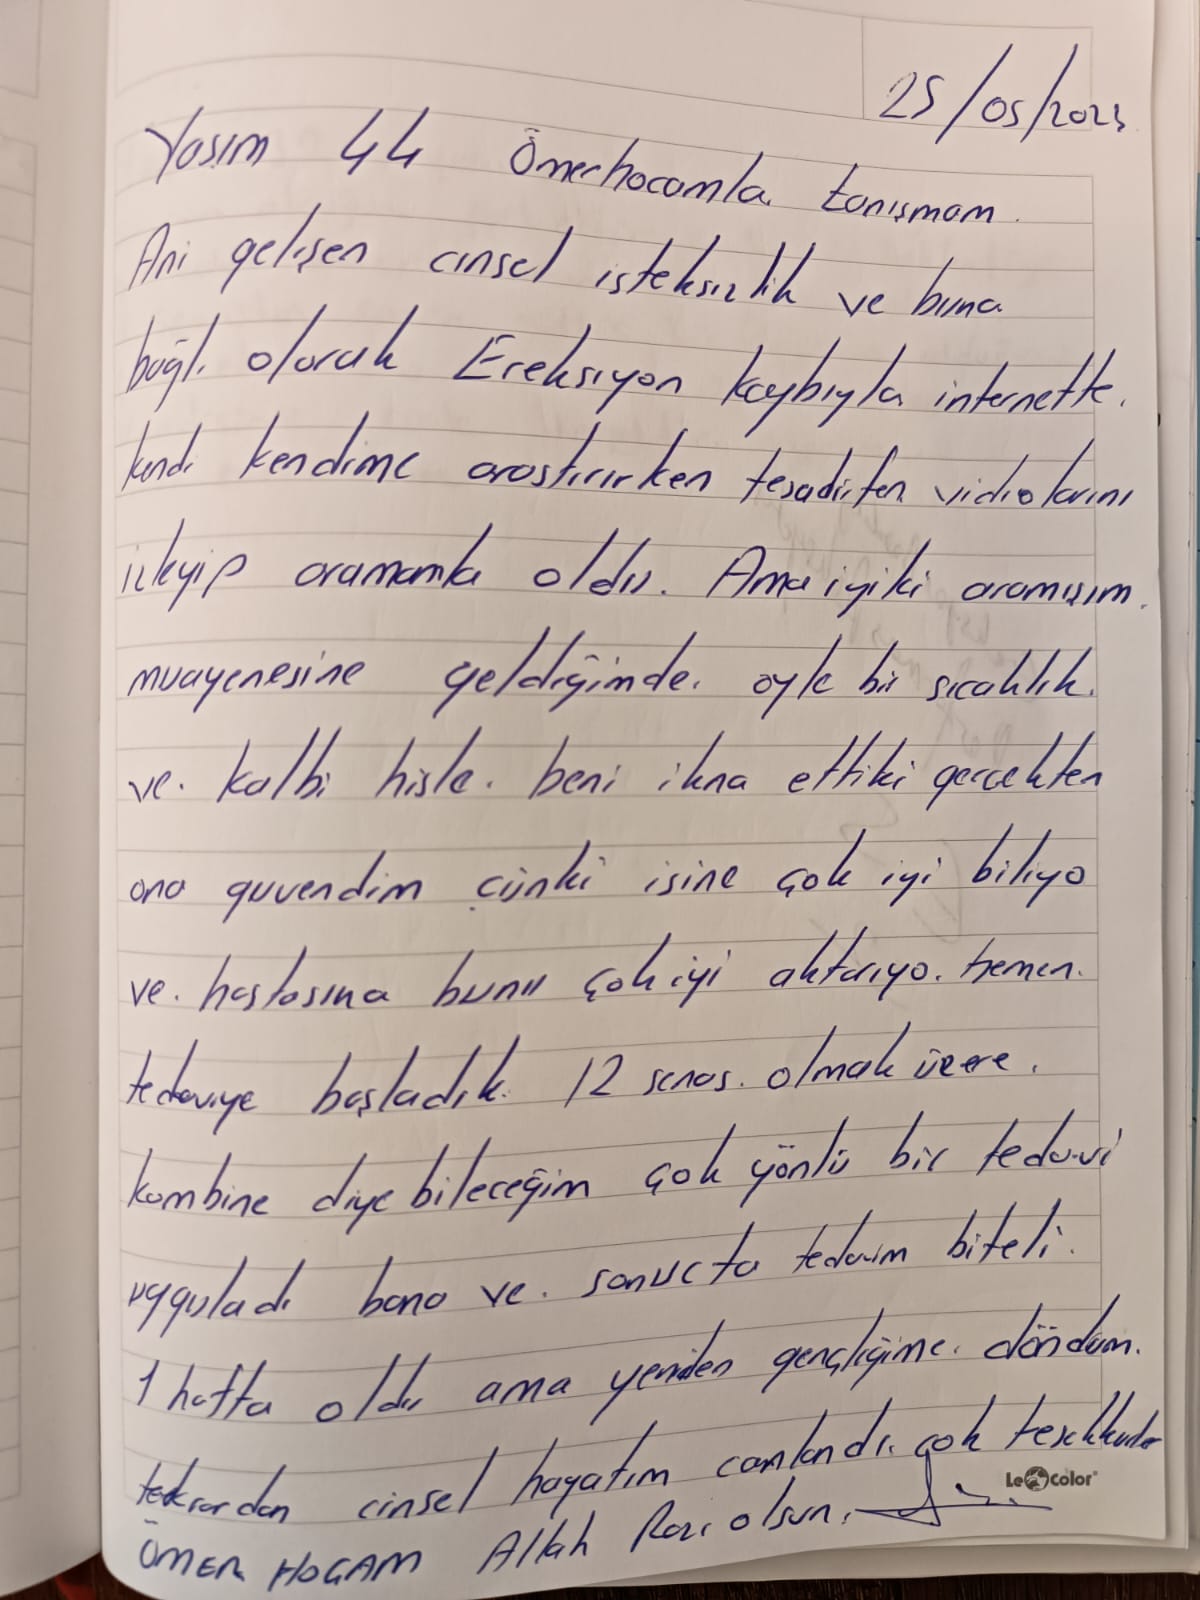 25/05/2023
Yaşım 44 Ömerhocamla tanışmam.
Ani gelişen cinsel isteksizlik ve buna
bağlı olarak Ereksiyon kaybıyla internette.
kendi kendime araştırırken tesadüfen vidiolarını
izleyip aramamla oldu. Ama iyiki aramışım.
muayenesine geldiğimde. öyle bir sıcaklık.
ve. kalbi hisle. beni ikna ettiki gerçekten
ona guvendim çünki isine çok iyi biliyo
ve. hastasına bunu çok iyi aktarıyo. hemen.
tedaviye başladık. 12 senas. olmak üzere.
kombine diye bileceğim çok yönlü bir tedavi
uyguladı bana ve. sonucta tedavim biteli.
1 hafta oldu ama yeniden gençliğime. döndüm.
tekrardan cinsel hayatım canlandı. çok teşekkurler
ÖMER HOCAM Allah Razı olsun.
Le color